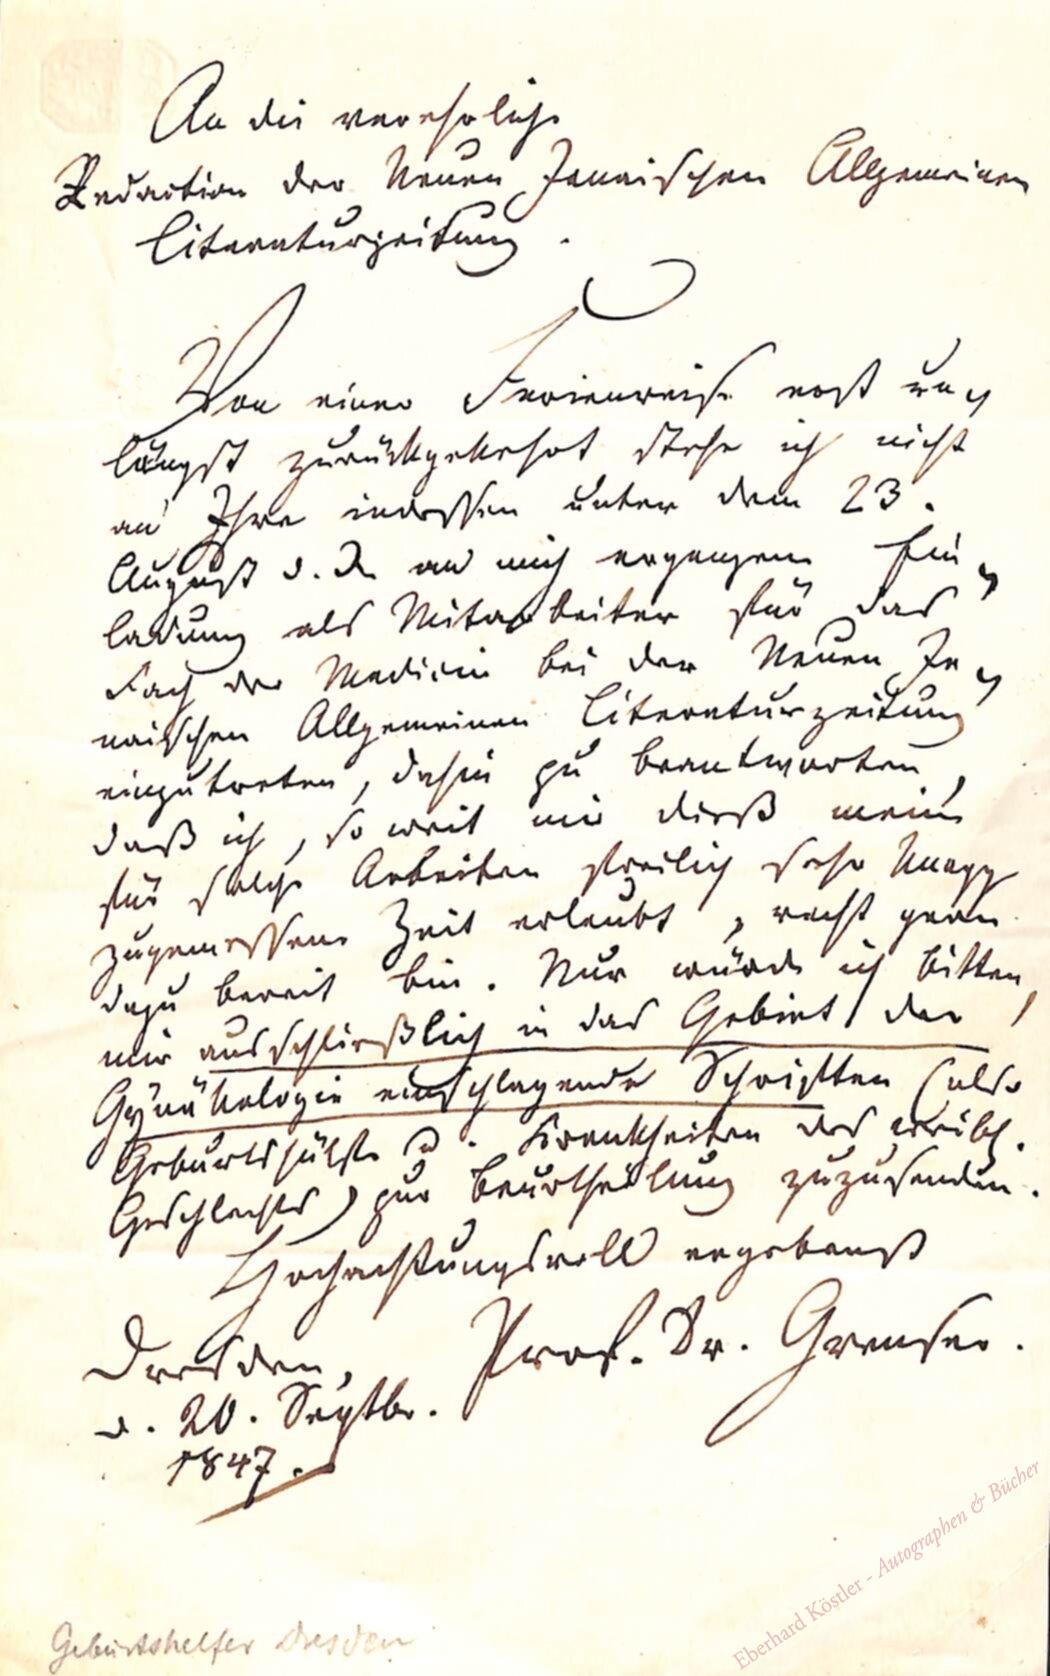 An die verehrliche
Redaction der Neuen Jenaischen Allgemeinen
Literaturzeitung.
Von einer Ferienreise erst un-
längst zurückgekehrt stehe ich nicht
an Ihre indessen unter dem 23.
August d. J. an mich ergangene Ein-
ladung als Mitarbeiter für das
Fach der Medicin bei der Neuen Je-
naischen Allgemeinen Literaturzeitung
einzutreten, dahin zu beantworten,
daß ich, so weit mir dieß meine
für solche Arbeiten freilich sehr knapp
zugemessene Zeit erlaubt, recht gern
dazu bereit bin. Nur würde ich bitten,
mir ausschließlich in das Gebiet der
Gynäkologie einschlagende Schriften (also
Geburtshülfe u. Krankheiten des weibl.
Geschlechts) zur Beurtheilung zuzusenden.
Hochachtungsvoll ergebenst
Dresden, Prof. Dr. Grenser.
d. 20. Septbr.
1847.
Geburtshelfer Dresden
Eberhard Köstler - Autographen & Bücher